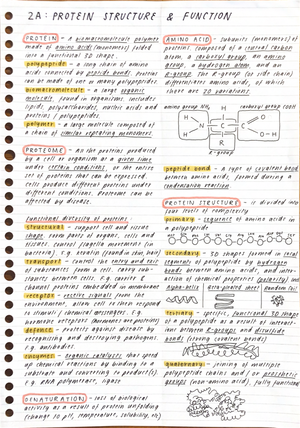 2A: PROTEIN STRUCTURE & FUNCTION
PROTEIN - a biomacromolecule polymer
made of amino acids (monomers) folded
into a functional 3D shape
polypeptide - a long chain of amino
acids connected by peptide bonds. Proteins
can be made of one or many polypeptides
biomacromolecule - a large organic
molecule found in organisms. includes
lipids, polysaccharides, nucleic acids and
proteins / polypeptides.
polymer - a large molecule composed of
a chain of similar repeating monomers.
PROTEOME - all the proteins produced
by a cell or organism at a given time
under certain conditions, or the entire
set of proteins that can be expressed.
cells produce different proteins under
different conditions. Proteomes can be
affected by disease.
functional diversity of proteins -
structural - support cell and tissue
shape. form parts of organs, cells and
tissues. control flagella movement (in
bacteria). E.g. keratin (found in skin, hair)
transport - control the entry and exit
of substances from a cell. carry sub-
stances between cells. E.g. carrier &
channel proteins embedded in membrane
receptor - receive signals from the
environment, allow cell to respond
to stimuli / chemical messengers. E.g.
receptors (hormones are proteins)
defence - protects against disease by
recognising and destroying pathogens
E.g. antibodies
enzymes - organic catalysts that speed
up chemical reactions by binding to a
substrate and converting to product(s)
E.g. RNA polymerase, ligase
DENATURATION - loss of biological
activity as a result of protein unfolding
(change to pH, temperature, solubility, etc)
AMINO ACID - subunits (monomers) of
proteins, composed of a central carbon
atom, a carboxyl group, an amino
group, a hydrogen atom and an
R-group. The R-group (or side chain)
differentiates amino acids, of which
there are 20 variations.
amino group NH₂
carboxyl group COOH
H
N
C
O
R
R-group
peptide bond - a type of covalent bond
between amino acids, formed during a
condensation reaction
PROTEIN STRUCTURE - is divided into
four levels of complexity
primary - sequence of amino acids in
a polypeptide
secondary - 3D shapes formed in local
segments of polypeptide by hydrogen
bonds between amino acids, and inter-
action of chemical properties (polarity) etc
alpha-helix
beta-pleated sheet
random coil
tertiary - specific, functional 3D shape
of a polypeptide as a result of interact-
ions between R-groups and disulfide
bonds (strong covalent bonds)
quaternary - joining of multiple
polypeptide chains and / or prosthetic
groups (non-amino acid). fully functional